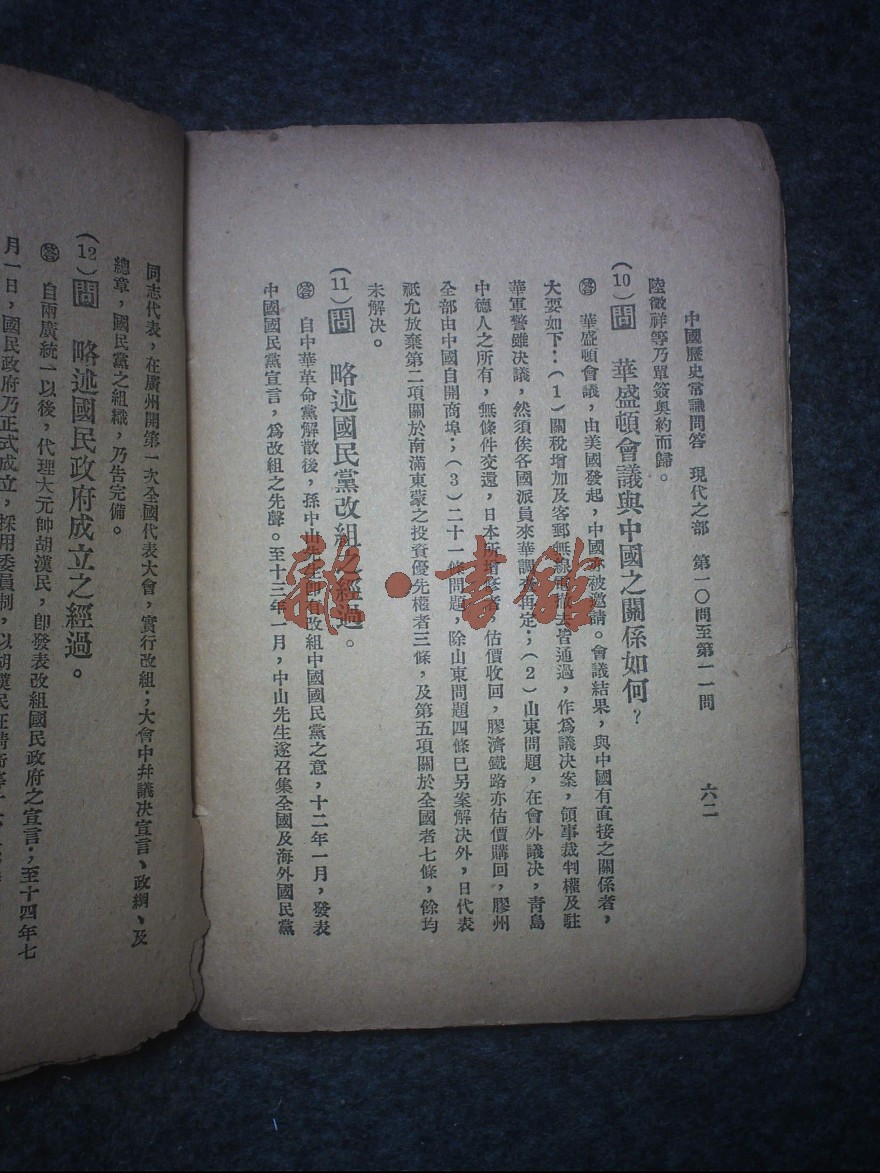 中國歷史常識問答　現代之部　第一〇問至第一一問　六二
陸徵祥等乃單簽奧約而歸。
(10)問　華盛頓會議與中國之關係如何？
答　華盛頓會議，由美國發起，中國亦被邀請。會議結果，與中國有直接之關係者，
大要如下：(1)關稅增加及客郵無線電撤去皆通過，作爲議決案，領事裁判權及駐
華軍警雖決議，然須俟各國派員來華調查再定；(2)山東問題，在會外議決，靑島
中德人之所有，無條件交還，日本所增修者，估價收回，膠濟鐵路亦估價購回，膠州
全部由中國自開商埠；(3)二十一條問題，除山東問題四條已另案解決外，日代表
祇允放棄第二項關於南滿東蒙之投資優先權者三條，及第五項關於全國者七條，餘均
未解決。
(11)問　略述國民黨改組之經過。
答　自中華革命黨解散後，孫中山先生卽有改組中國國民黨之意，十二年一月，發表
中國國民黨宣言，爲改組之先聲。至十三年一月，中山先生遂召集全國及海外國民黨
同志代表，在廣州開第一次全國代表大會，實行改組；大會中幷議決宣言、政綱、及
總章，國民黨之組織，乃告完備。
(12)問　略述國民政府成立之經過。
答　自兩廣統一以後，代理大元帥胡漢民，卽發表改組國民政府之宣言；至十四年七
月一日，國民政府乃正式成立，採用委員制，以胡漢民汪精衛等
雜·書館